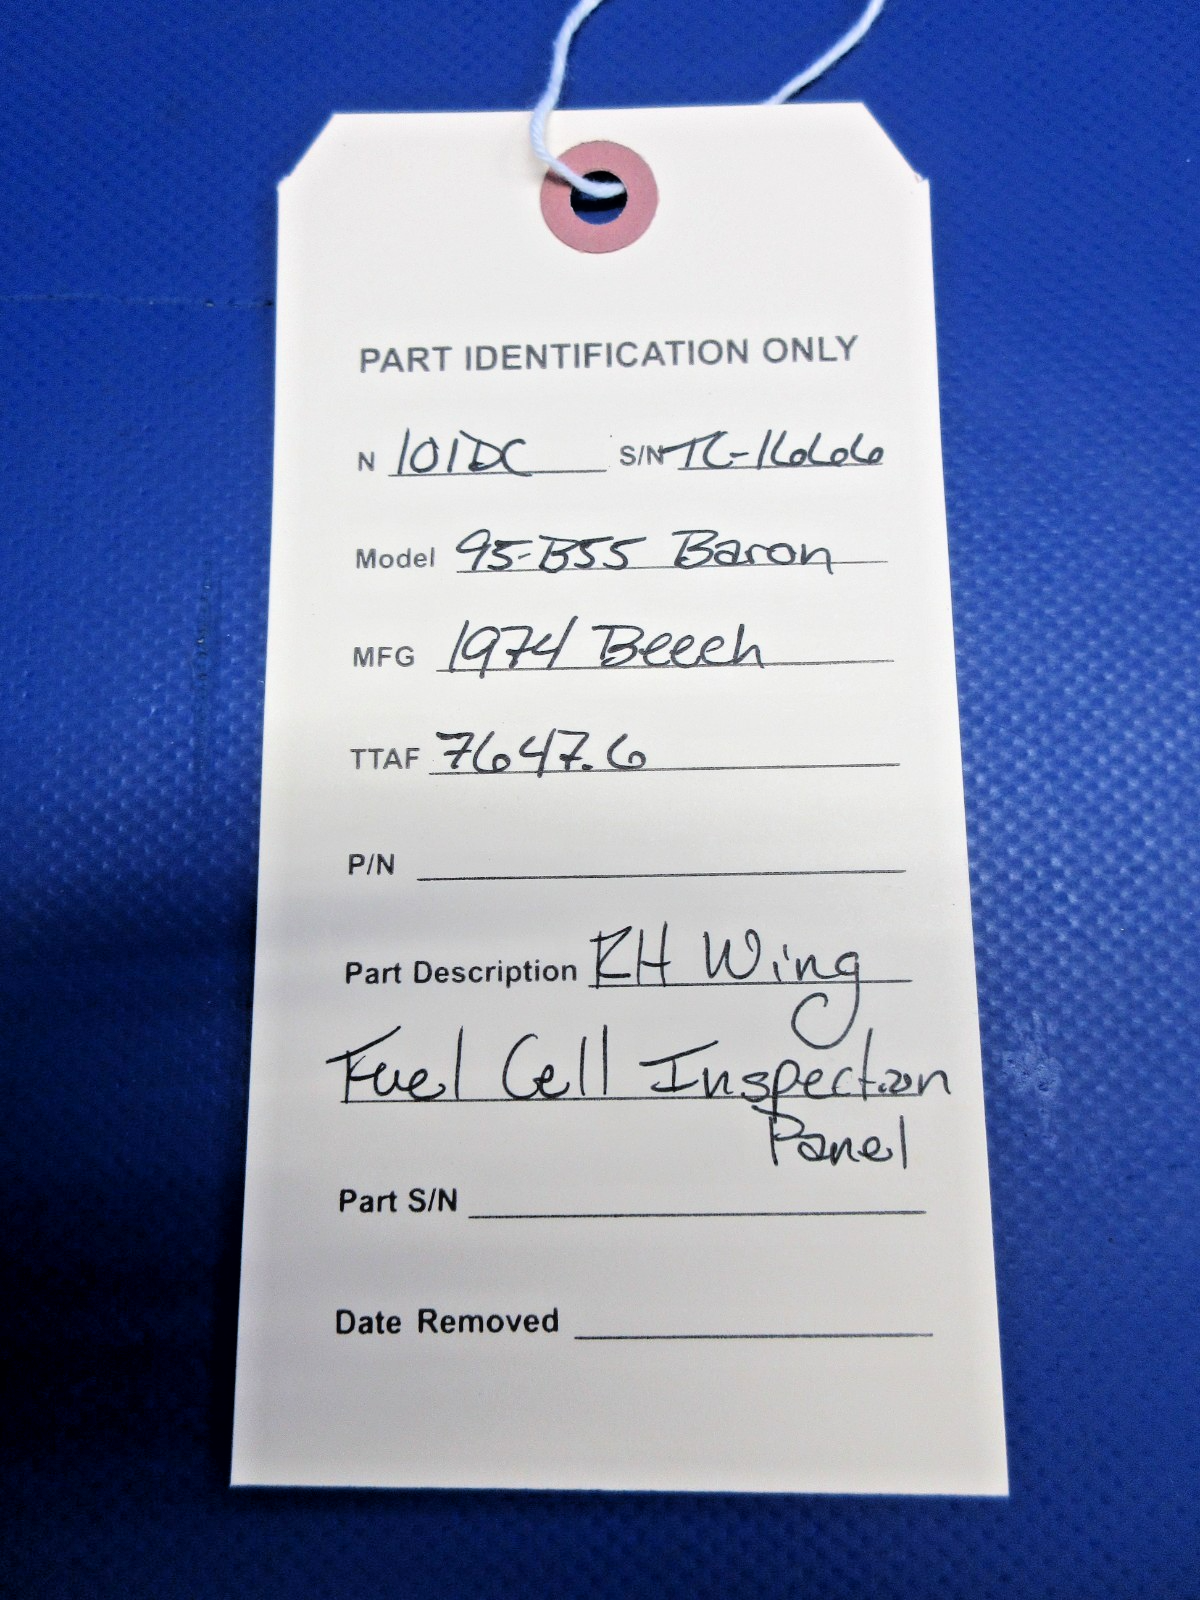 PART IDENTIFICATION ONLY
N 101DC S/N TC-1666
Model 95-B55 Baron
MFG 1974 Beech
TTAF 7647.6
P/N
Part Description RH Wing
Fuel Cell Inspection
Panel
Part S/N
Date Removed